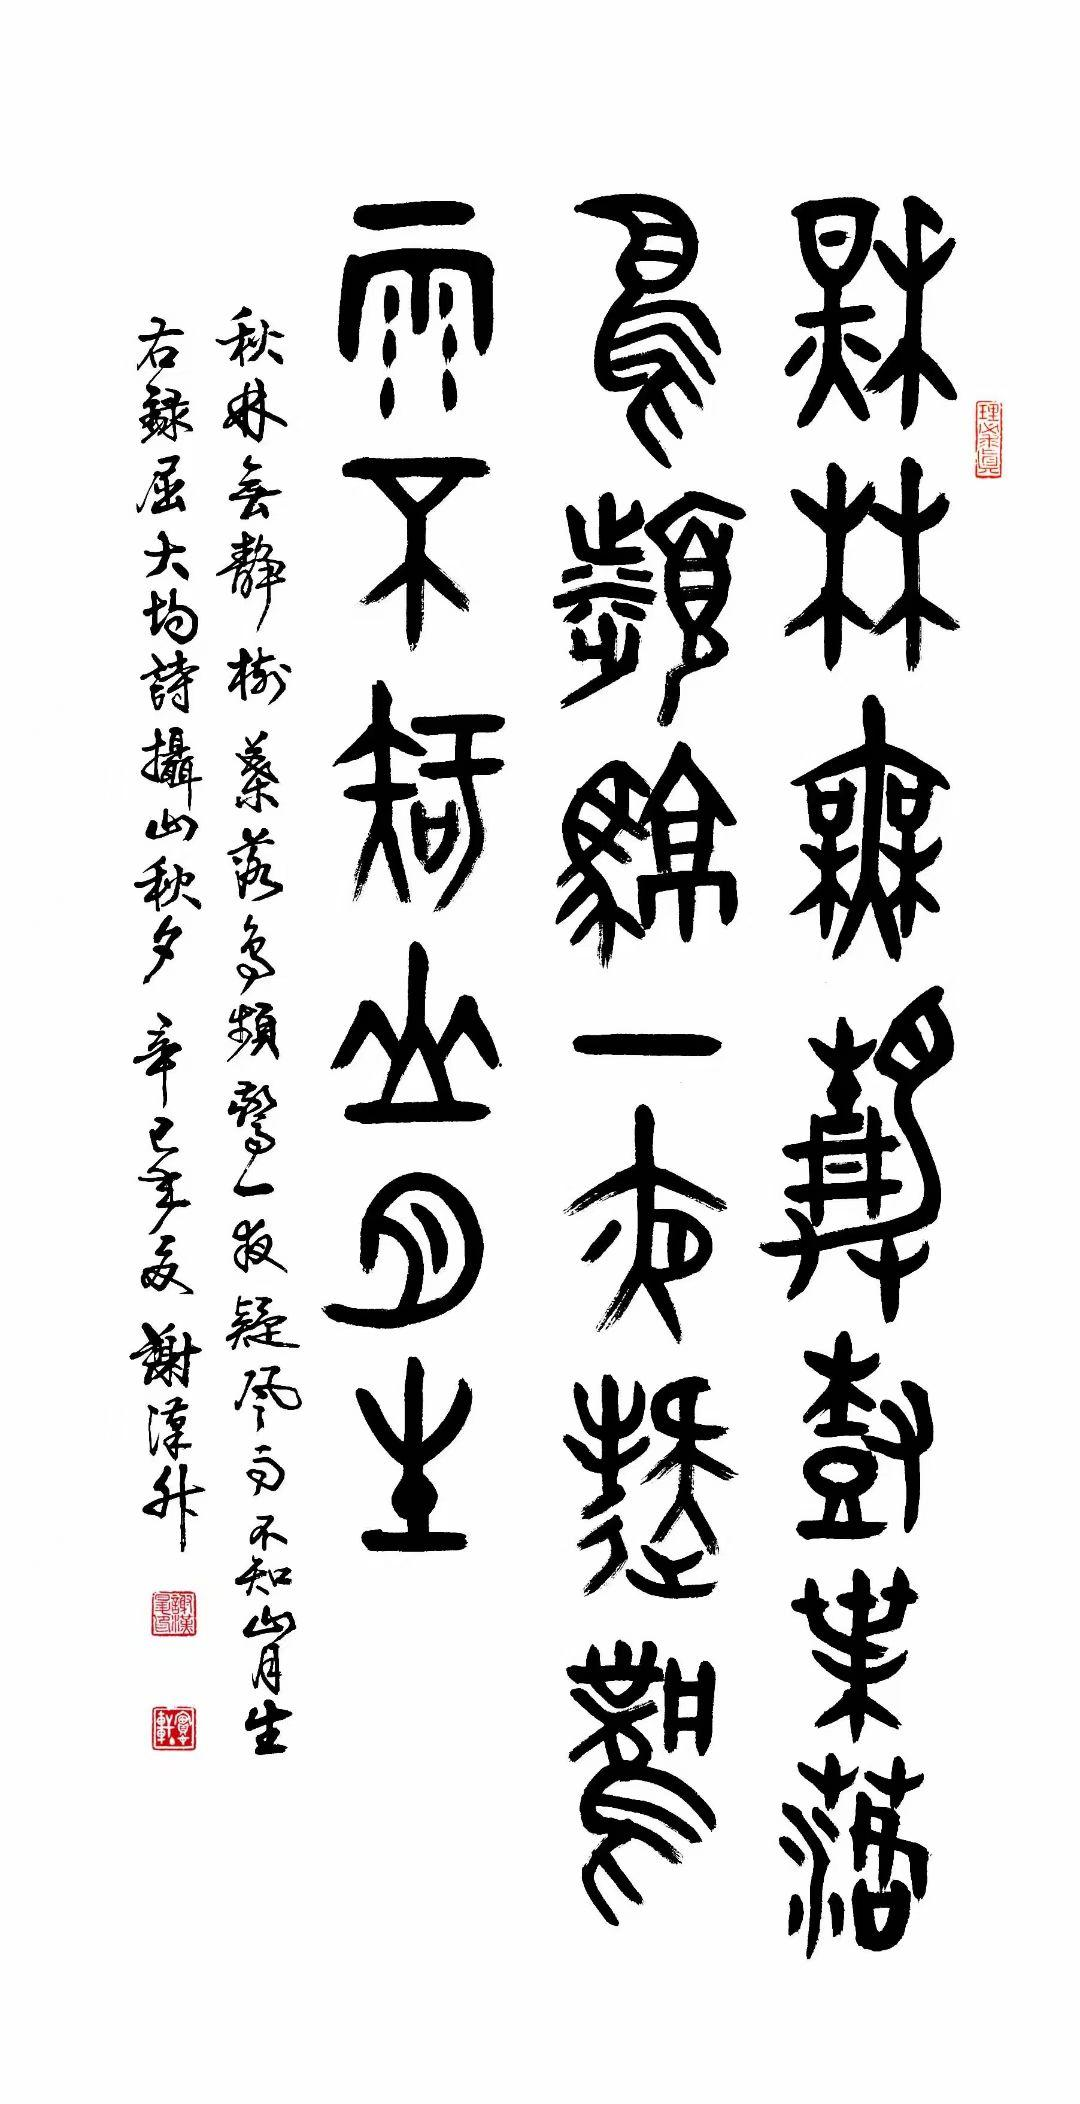 秋林無靜樹葉落
鳥頻驚一夜疑風
雨不知山月生
秋林無靜樹葉落鳥頻驚一夜疑風雨不知山月生
右録屈大均詩攝山秋夕 辛巳年夏 謝漢升